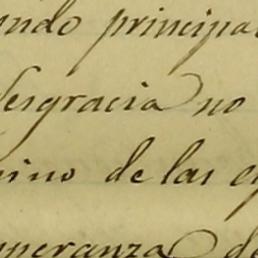 ndo principa
desgracia no
ino de las e
speranza de